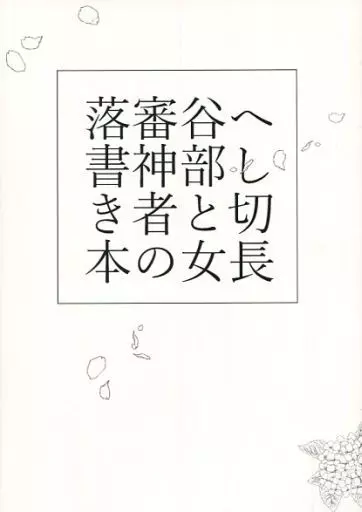 へし切長
谷部と女
審神者の
落書き本